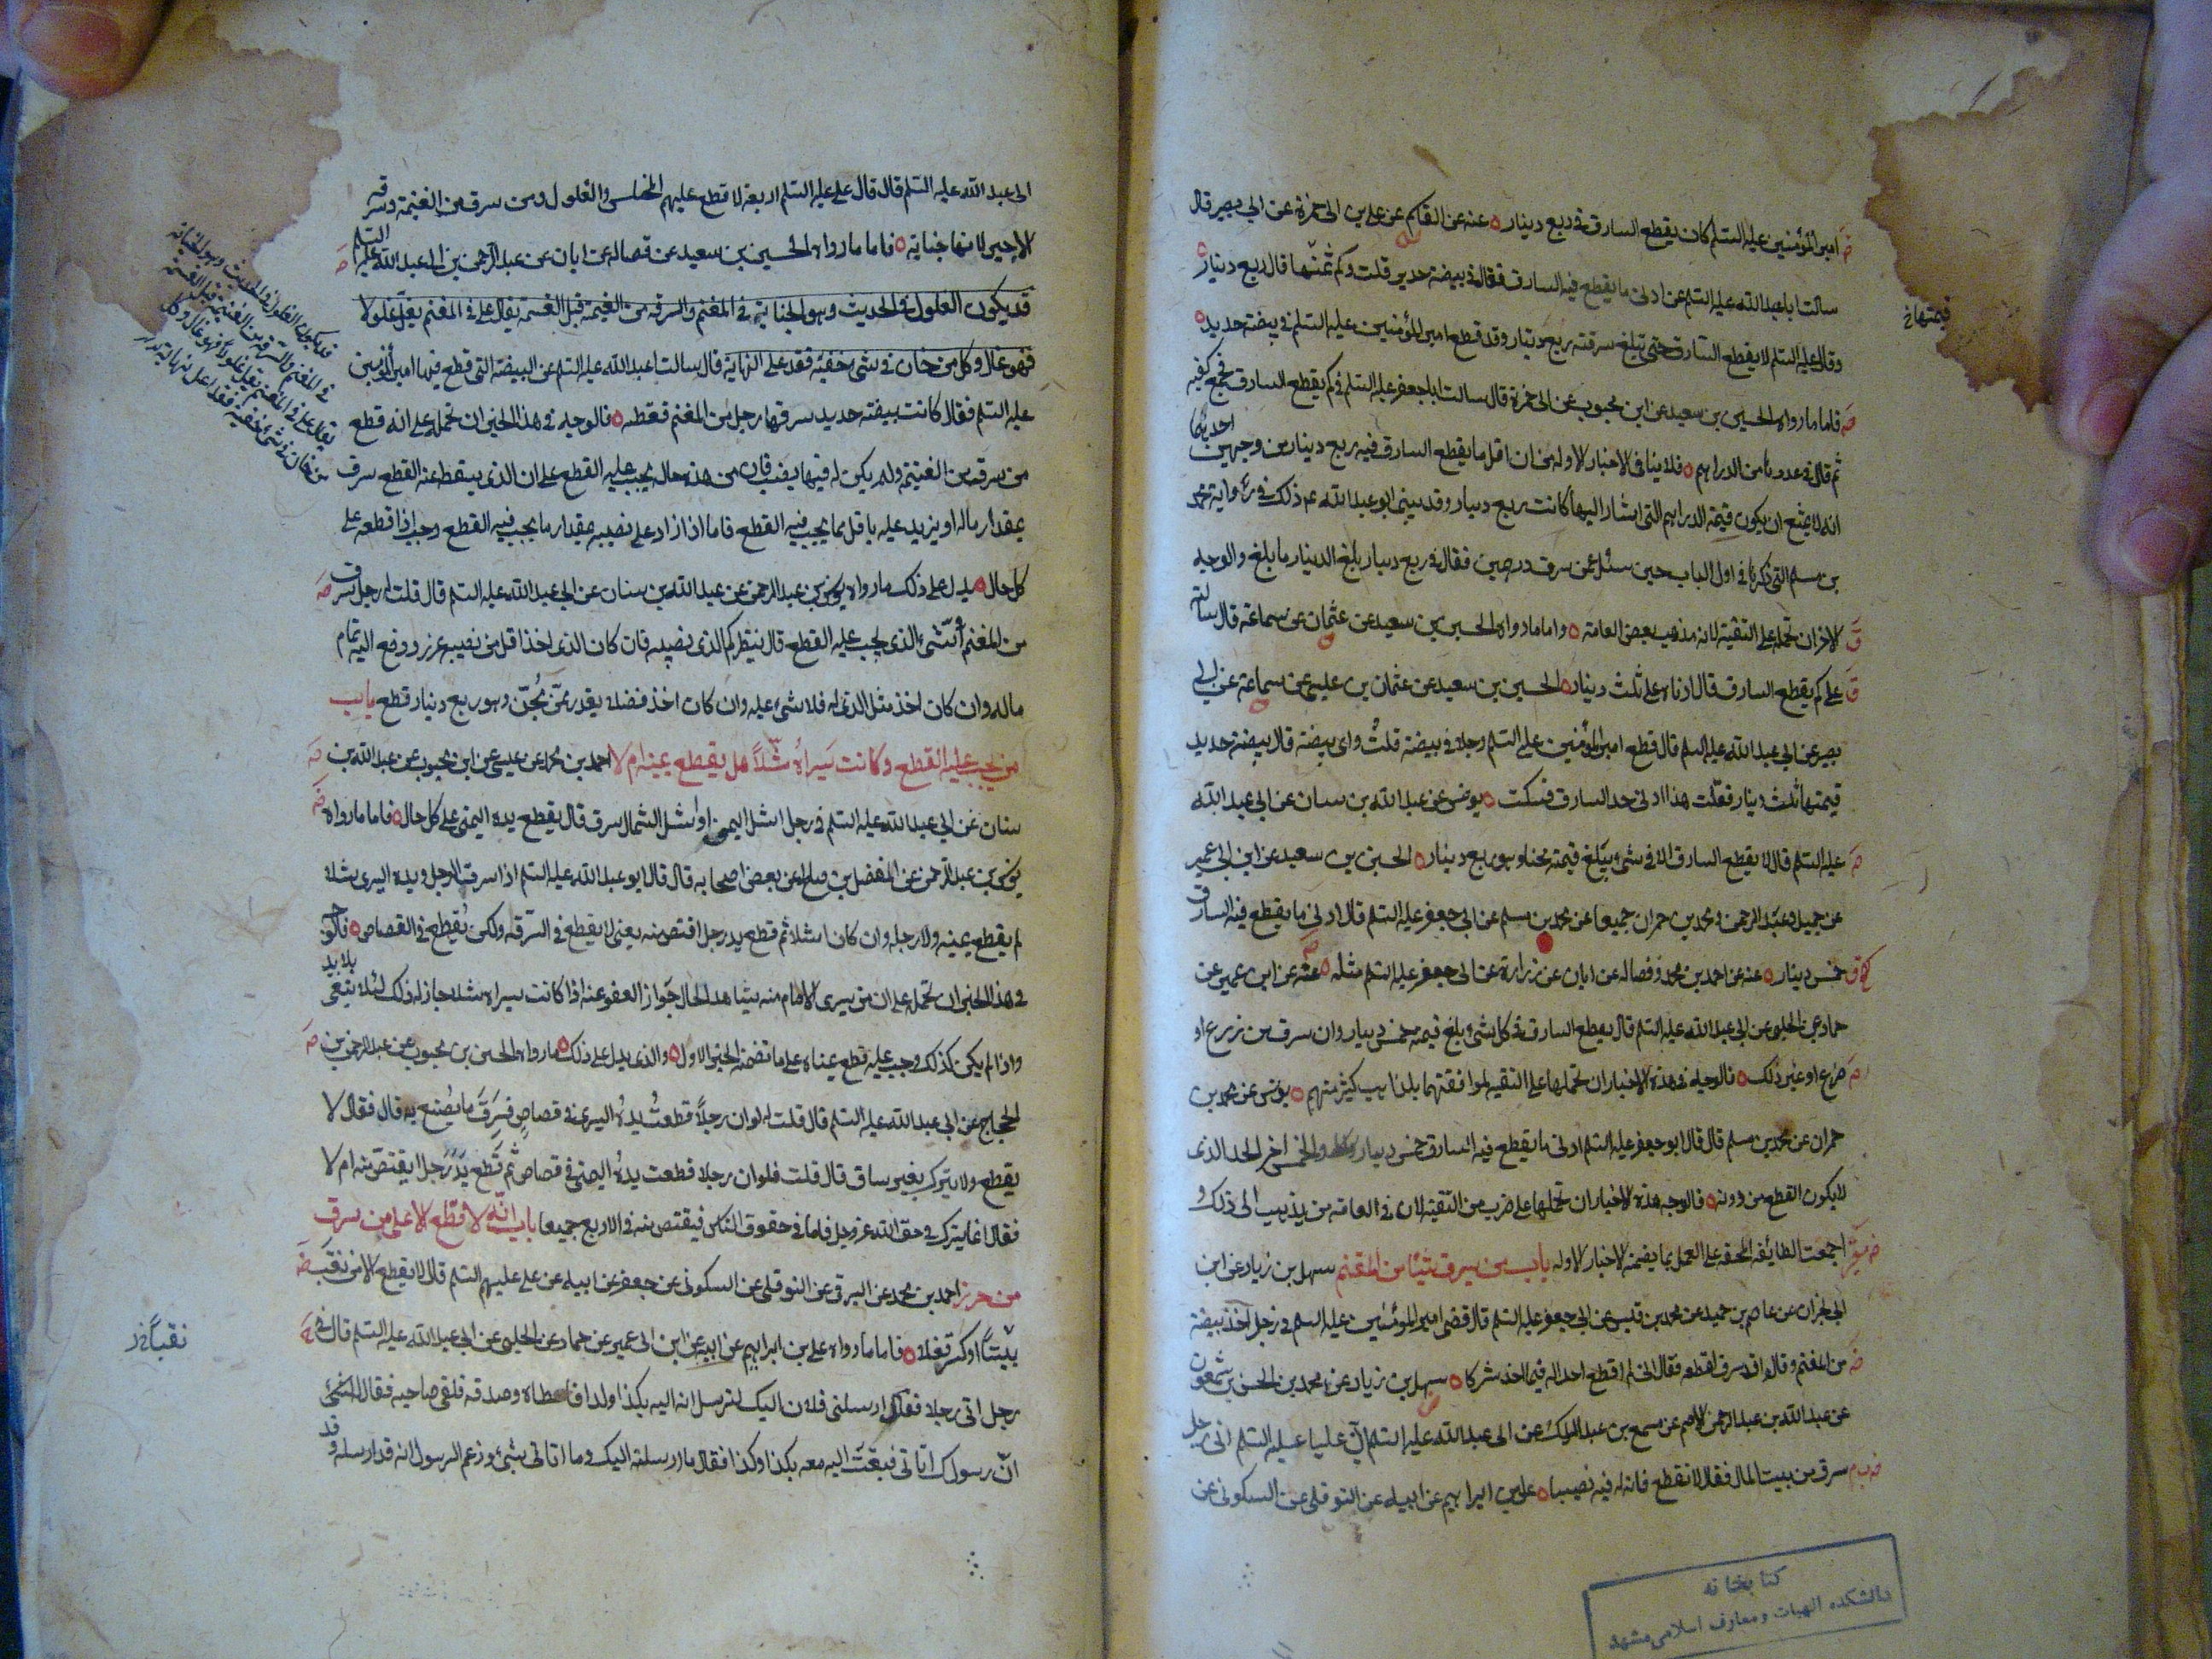 امير المؤمنين عليه السلم كان يقطع السارق فى ربع دينار عنه عن القاسم عن على بن ابى حمزة عن ابى بصير قال
سالت ابا عبد الله عليه السلم عن ادنى ما يقطع فيه السارق فقال فى بيضة حديد قلت وكم ثمنها قال ربع دينار
قيمتها خ
وقال عليه السلم لا يقطع السارق حتى تبلغ سرقته ربع دينار وقد قطع امير المؤمنين عليه السلم فى بيضة حديد
فاما ما رواه الحسين بن سعيد عن ابن محبوب عن ابى حمزة قال سالت ابا جعفر عليه السلم فى كم يقطع السارق فجمع كفيه
ثم قال فى عددها من الدراهم فلا ينافى الاخبار الاولة من ان اقل ما يقطع السارق فيه ربع دينار من وجهين احدهما
انه لا يمتنع ان يكون قيمة الدراهم التى اشار اليها كانت ربع دينار وقد بين ابو عبد الله ع ذلك فى رواية محمد
بن مسلم التى ذكرناها فى اول الباب حين سئل عمن سرق درهمين فقال فى ربع دينار بلغ الدينار ما بلغ والوجه
الاخر ان نحمله على التقية لانه مذهب بعض العامة واما ما رواه الحسين بن سعيد عن عثمان عن سماعة قال سالته
على كم يقطع السارق قال ادناه على ثلث دينار الحسين بن سعيد عن عثمان بن عيسى عن سماعة عن ابى
بصير عن ابى عبد الله عليه السلم قال قطع امير المؤمنين عليه السلم رجلا فى بيضة قلت واى بيضة قال بيضة حديد
قيمتها ثلث دينار فقلت هذا ادنى حد السارق فسكت يونس عن عبد الله بن سنان عن ابى عبد الله
عليه السلم قال لا يقطع السارق الا فى شئ يبلغ قيمته مجنا وهو ربع دينار الحسين بن سعيد عن ابن ابى عمير
عن جميل وعبد الرحمن ومحمد بن حمران جميعا عن محمد بن مسلم عن ابى جعفر عليه السلم قال ادنى ما يقطع فيه السارق
خمس دينار عنه عن احمد بن محمد وفضاله عن ابان عن زرارة عن ابى جعفر عليه السلم مثله عنه عن ابن عمير عن
حماد عن الحلبى عن ابى عبد الله عليه السلم قال يقطع السارق فى كل شئ بلغ قيمته خمس دينار وان سرق من زرع او
ضرع او غير ذلك فالوجه فى هذه الاخبار ان نحملها على التقية لموافقتهما بلذاهب كثير منهم يونس عن محمد بن
حمران عن محمد بن مسلم قال قال ابو جعفر عليه السلم ادنى ما يقطع فيه السارق خمس دينار والخمس اخر الحد الذى
لا يكون القطع من دونه فالوجه هذه الاخبار ان نحملها على ضرب من التقية لان فى العامة من يذهب الى ذلك و
اجمعت الطائفة المحقة على العمل بما يضمنه الاخبار الاولة باب من سرق شيئا من المغنم سهل بن زياد عن ابن
ابى نجران عن عاصم بن حميد عن محمد بن قيس عن ابى جعفر عليه السلم قال قضى امير المؤمنين عليه السلم فى رجل اخذ بيضة
من المغنم وقالوا قد سرق اقطعه فقال انى لم اقطع احدا له فيما اخذ شرك سهل بن زياد عن محمد بن الحسن بن شمون
عن عبد الله بن عبد الرحمن الاصم عن مسمع بن عبد الملك عن ابى عبد الله عليه السلم ان عليا عليه السلم اتى رجل
سرق من بيت المال فقال لا تقطع فان له فيه نصيبا على بن ابراهيم عن ابيه عن النوفلى عن السكونى عن
كتابخانه
دانشكده الهيات ومعارف اسلامى مشهد
ابى عبد الله عليه السلم قال قال على عليه السلم اربعة لا قطع عليهم المختلس والغلول ومن سرق من الغنيمة وسرقة
الاجير لانها خيانة فاما ما رواه الحسين بن سعيد عن فضاله عن ابان عن عبد الرحمن بن ابى عبد الله عليه السلم
قد يكون الغلول فى الحديث وهو الخيانة فى المغنم والسرقة من الغنيمة قبل القسمة يقال غل فى المغنم يغل غلولا
فهو غال وكل من خان فى شئ خفية فقد غل النهاية قال سالت ابا عبد الله عليه السلم عن البيضة التى قطع فيها امير المؤمنين
عليه السلم فقال كانت بيضة حديد سرقها رجل من المغنم فقطعه فالوجه فى هذا الخبر ان نحمله على انه قطع
من سرق من الغنيمة ولم يكن له فيها نصيب فان من هذه حاله يجب عليه القطع على ان الذى يسقط عنه القطع سرق
بمقدار ماله او يزيد عليه باقل مما يجب فيه القطع فاما اذا زاد على نصيبه بمقدار ما يجب فيه القطع وجب اذا قطعه على
كل حال يدل على ذلك ما رواه يونس بن عبد الرحمن عن عبد الله بن سنان عن ابى عبد الله عليه السلم قال قلت له رجل سرق
من المغنم أشئ الذى يجب عليه القطع قال ينظر كم الذى نصيبه فان كان الذى اخذ اقل من نصيبه عزر ودفع اليه تمام
ماله وان كان اخذ مثل الذى له فلا شئ عليه وان كان اخذ فضلا بقدر ثمن مجن وهو ربع دينار قطع باب
من يجب عليه القطع وكانت يسراه شلا هل يقطع يمينه ام لا احمد بن محمد عن عيسى عن ابن محبوب عن عبد الله بن
سنان عن ابى عبد الله عليه السلم فى رجل اشل اليمنى او اشل الشمال سرق قال يقطع يده اليمنى على كل حال فاما ما رواه
يونس بن عبد الرحمن عن المفضل بن صالح عن بعض اصحابه قال قال ابو عبد الله عليه السلم اذا سرق الرجل ويده اليسرى شلاء
لم يقطع يمينه ولا رجله وان كان اشلا ثم قطع يد رجل اقتص منه يعنى لا يقطع فى السرقة ولكن يقطع فى القصاص فالوجه
فى هذا الخبر ان نحمله على ان من يرى الامام منه بشاهد الحال جواز العفو عنه اذا كانت يسراه شلا جاز له ذلك لئلا يبقى بلا يد
واذا لم يكن كذلك وجب عليه قطع يمناه على ما تضمنه الخبر الاول والذى يدل على ذلك ما رواه الحسن بن محبوب عن عبد الرحمن بن
الحجاج عن ابى عبد الله عليه السلم قال قلت له لو ان رجلا قطعت يده اليسرى فى قصاص فسرق ما يصنع به قال فقال لا
يقطع ولا يترك بغير ساق قال قلت فلو ان رجلا قطعت يده اليمنى فى قصاص ثم قطع يد رجل ايقتص منه ام لا
فقال انما يترك فى حق الله عز وجل فاما فى حقوق الناس فيقتص منه فى الاربع جميعا باب انه لا قطع الا على من سرق
من حرز احمد بن محمد عن البرقى عن النوفلى عن السكونى عن جعفر عن ابيه عن على عليهم السلم قال لا يقطع الا من نقب
نقبا خ
بيتا او كسر قفلا فاما ما رواه على بن ابراهيم عن ابيه عن ابن ابى عمير عن حماد عن الحلبى عن ابى عبد الله عليه السلم قال فى
رجل اتى رجلا فقال ارسلنى فلان اليك لترسل انه اليه بكذا اولدا فاعطاه وصدقه فلقى صاحبه فقال
ان رسولك اتانى فبعثت اليه معه بكذا وكذا فقال ما ارسلته اليك وما اتانى بشئ وزعم الرسول انه قد ارسله وقد
قد يكون الغلول فى الحديث وهو الخيانة
فى المغنم والسرقة من الغنيمة قبل القسمة
يقال غل فى المغنم يغل غلولا فهو غال وكل
من خان فى شئ خفية فقد غل نهاية